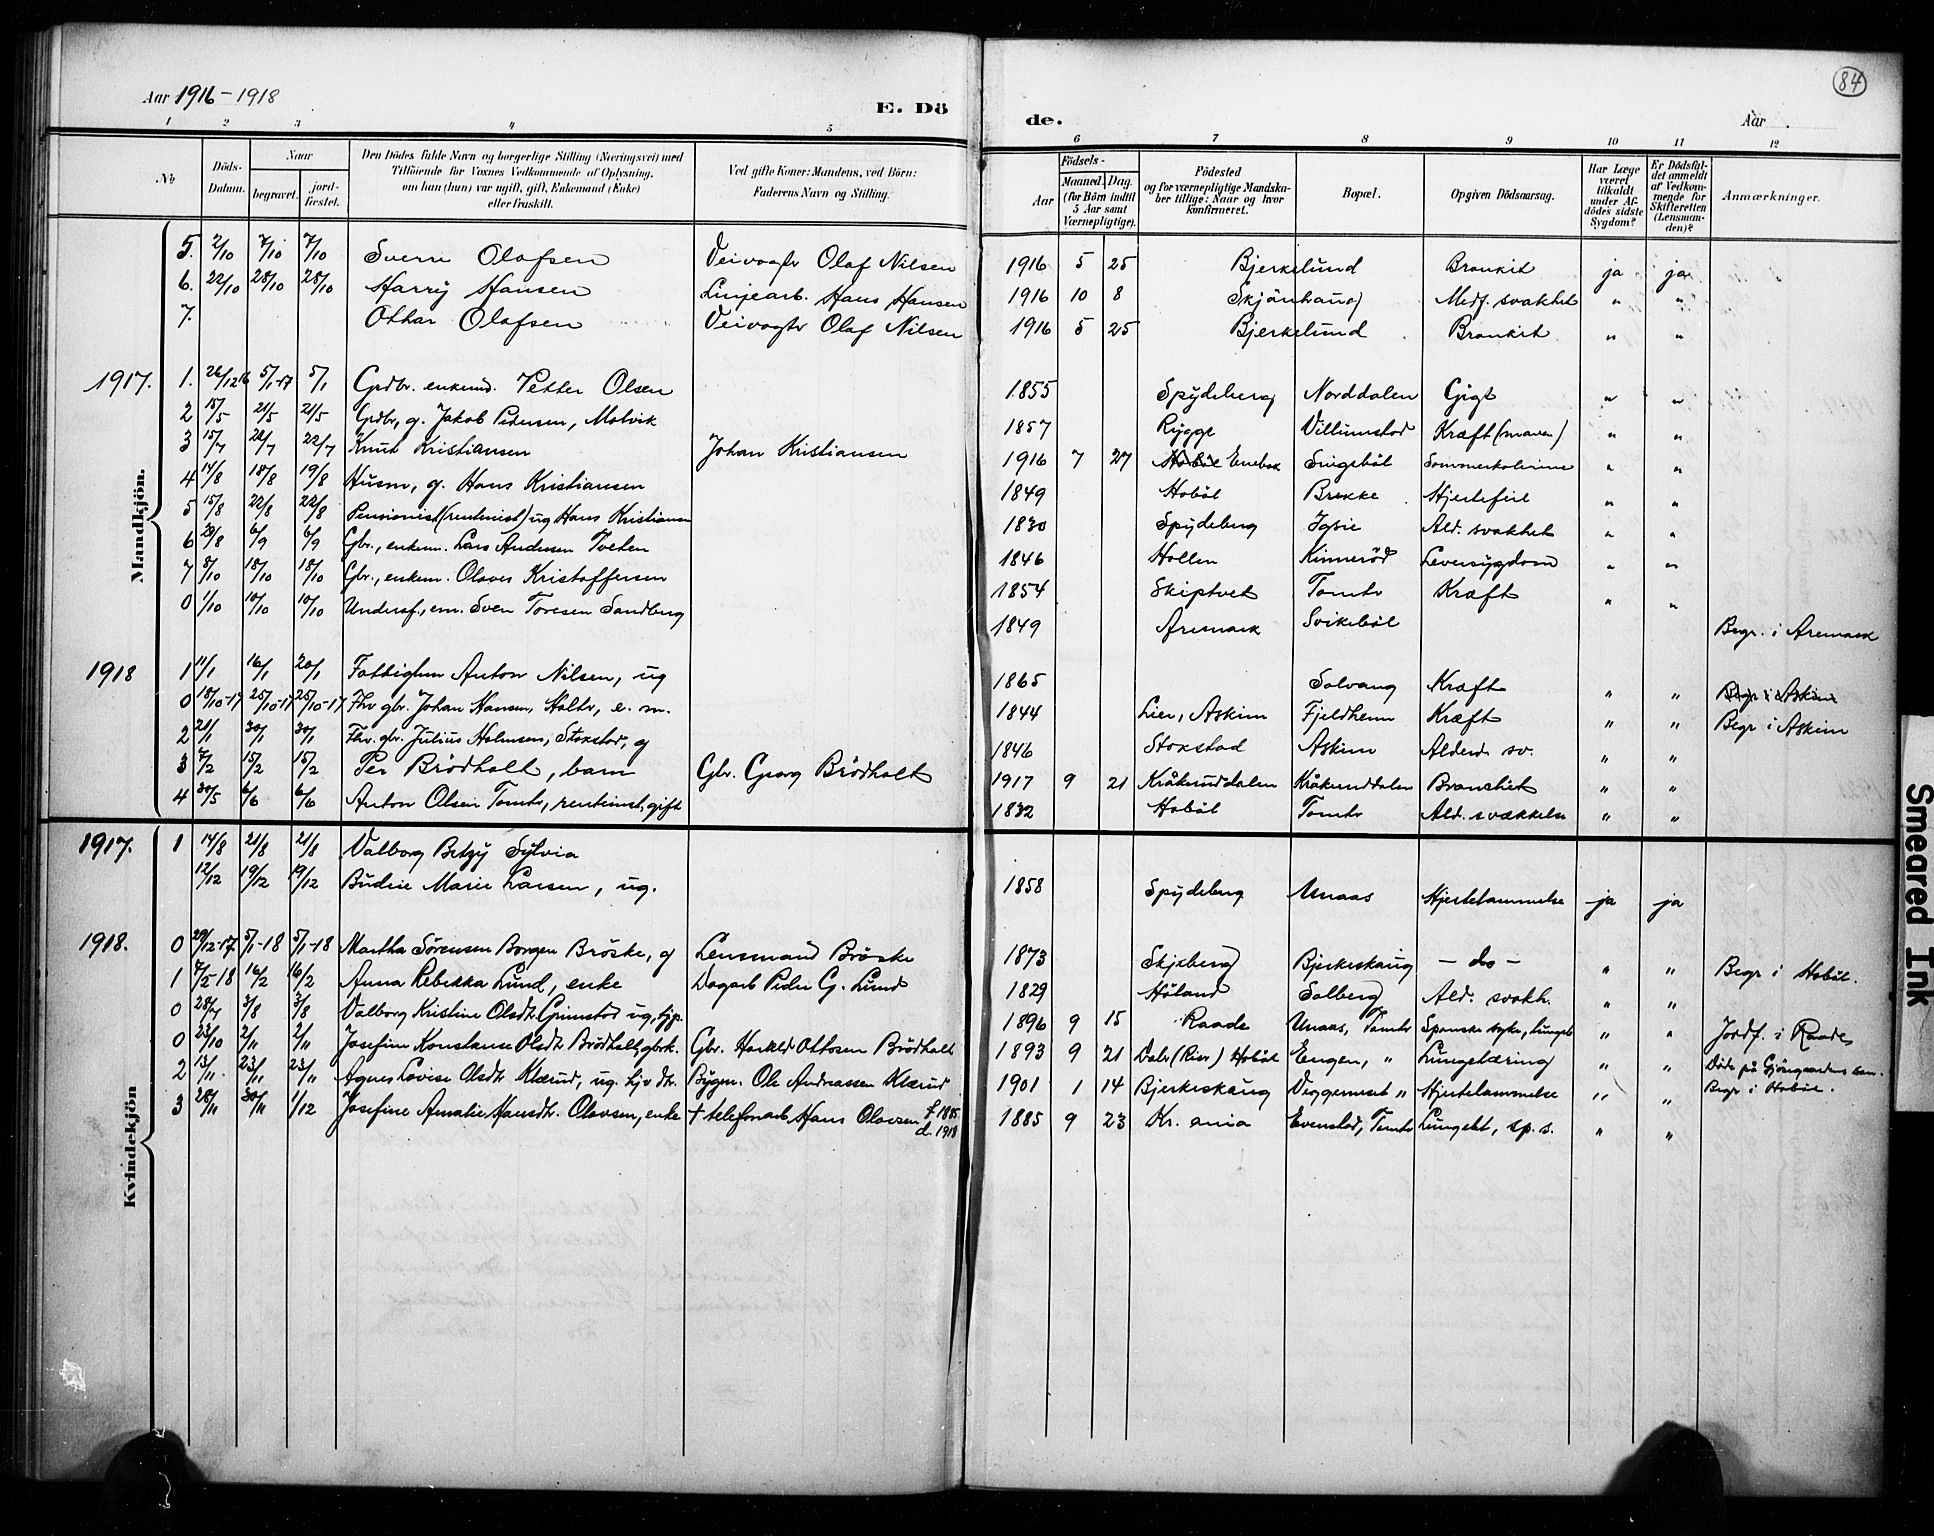 84
Aar 1916-1918 E. Dö de. Aar
1 2 3 4 5 6 7 8 9 10 11 12
№ Döds-Datum. Naar begravet. jord-fæstet. Den Dödes fulde Navn og borgerlige Stilling (Næringsvei) med Tilföiende for Voxnes Vedkommende af Oplysning, om han (hun) var ugift, gift, Enkemand (Enke) eller fraskilt. Ved gifte Koner: Mandens, ved Börn: Faderens Navn og Stilling. Födsels- Aar Maaned. Dag. (for Börn indtil 5 Aar samt Værnepligtige). Födested og for værnepligtige Mandskaber tillige: Naar og hvor konfirmeret. Bopæl. Opgiven Dödsaarsag. Har Læge været tilkaldt under Afdödes sidste Sygdom? Er Dödsfaldet anmeldt af Vedkommende for Skifteretten (Lensmanden)? Anmærkninger.
Mandkjön.
5. 2/10 7/10 7/10 Sverre Olafsen Veivogtr Olaf Nilsen 1916 5 25 Bjerkelund Bronkit ja ja
6. 22/10 28/10 28/10 Harry Hansen Linjearb. Hans Hansen 1916 10 8 Skjönhaug Medf. svakhet " "
7. Othar Olafsen Veivogtr Olaf Nilsen 1916 5 25 Bjerkelund Bronkit " "
1917. 1. 26/12 16 5/1-17 5/1 Grdbr. enkemd. Petter Olsen 1855 Spydeberg Norddalen Gigt " "
2 15/5 21/5 21/5 Grdbr, g. Jakob Pedersen, Molvik 1857 Rygge Villumstad Kræft (maven) " "
3 15/7 22/7 22/7 Knut Kristiansen Johan Kristiansen 1916 7 27 Hobøl Enebak Singsböl Sommerkolerine " "
4 14/8 18/8 19/8 Husm, g. Hans Kristiansen 1849 Hobøl Brekke Hjertefeil " "
5 15/8 22/8 22/8 Pensionist (rentenist) ug Hans Kristiansen 1830 Spydeberg Igsie Ald. svakhet " "
6 30/8 6/9 6/9 Gbr., enkem. Lars Andersen Tveten 1846 Hollen Kinneröd Leversygdom " "
7 8/10 18/10 18/10 Gbr., enkem. Olaves Kristoffersen 1854 Skiptvet Tomtr Kræft " "
0 1/10 10/10 10/10 Undersf., em. Sven Toresen Sandberg 1849 Aremark Svikeböl Begr. i Aremark
1918 1 11/1 16/1 20/1 Fattiglem Anton Nilsen, ug 1865 Solvang Kræft " " Begr i Askim
0 18/10-17 25/10-17 25/10-17 Fhv gbr. Johan Hansen, Holtr, e. m. 1844 Lier, Askim Fjeldhem Kræft " " Begr i Askim
2 21/1 30/1 30/1 Fhv. gbr. Julius Holmsen, Stokstad, g 1846 Stokstad Askim Alderd. sv. " "
3 7/2 15/2 15/2 Per Brödholt, barn Gbr. Georg Brödholt 1917 9 21 Kråkerud­dalen Kråkerud­dalen Bronchit " "
4 30/5 6/6 6/6 Anton Olsen Tomtr, rentenist, gift 1832 Hobøl Tomtr Ald. svækkelse " "
Kvindekjön
1917. 1 14/8 21/8 21/8 Valborg Betzy Sylvia
12/12 19/12 19/12 Budeie Marie Larsen, ug. 1858 Spydeberg Unaas Hjertelammelse ja ja
1918. 0 29/12-17. 5/1-18 5/1-18 Martha Sørensen Borgen Bröske, g Lensmand Bröske 1873 Skjeberg Bjerkeskaug - do - " " Begr i Hobøl.
1 7/2-18 16/2 16/2 Anna Rebekka Lund, enke Dagarb Peder G. Lund 1829 Høland Solberg Ald. svakh. " "
0 28/7 3/8 3/8 Valborg Kristine Olsdtr. Grimstad ug, tjp. 1896 9 15 Raade Unaas, Tomtr Spanske syke, lungeb " " Jordf. i Raade
0 23/10 2/11 2/11 Josefine Konstanse Olsdtr Brödholt, gbrk. Gbr. Harald Ottosen Brödholt 1893 9 21 Dalr (Rier) Hobøl Engen, " Lungetæring " " Döde på Gjörgaardens san. Begr i Hobøl.
2 13/11 23/11 23/11 Agnes Lovise Olsdtr Klærud, ug. hjv dtr. Bygm. Ole Andreassen Klærud 1901 1 14 Bjerkeskaug Veggerneset " Hjertelammelse " "
3 28/11 30/11 1/12 Josefine Amalie Hansdtr. Olavsen, enke + telefonarb Hans Olavsen f. 1885 d. 1918 1885 9 23 Kr. ania Evenstad, Tomtr Lungebt, sp. s. " "
Smeared Ink